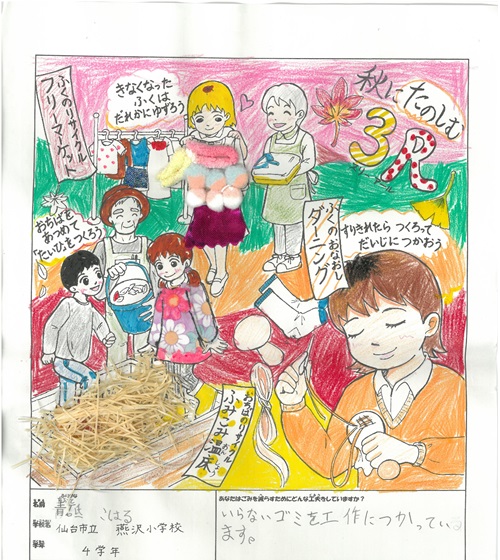 ふくのリサイクル
フリーマーケット
きなくなった
ふくは
だれかにゆずろう
秋にたのしむ
3R
おちばを
あつめて
「たいひ」をつくろう
ふくのおなおし
ダーニング
すりきれたら つくろって
だいじにつかおう
おちばのリサイクル
ふみこみ温床
名前
こはる
仙台市立 燕沢小学校
4 学年
あなたはごみを減らすためにどんな工夫をしていますか?
いらないゴミを工作につかってい
ます。